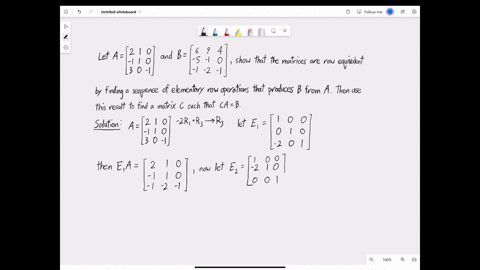 Untitled whiteboard
Follow me
Let A = [2 1 0; -1 1 0; 3 0 -1] and B = [6 9 4; -5 -1 0; -1 -2 -1], show that the matrices are row equivalent
by finding a sequence of elementary row operations that produces B from A. Then use
this result to find a matrix C such that CA = B.
Solution: A = [2 1 0; -1 1 0; 3 0 -1] -2R₁+R₃→R₃ let E₁ = [1 0 0; 0 1 0; -2 0 1]
then E₁A = [2 1 0; -1 1 0; -1 -2 -1], now let E₂ = [1 0 0; -2 1 0; 0 0 1]
100%